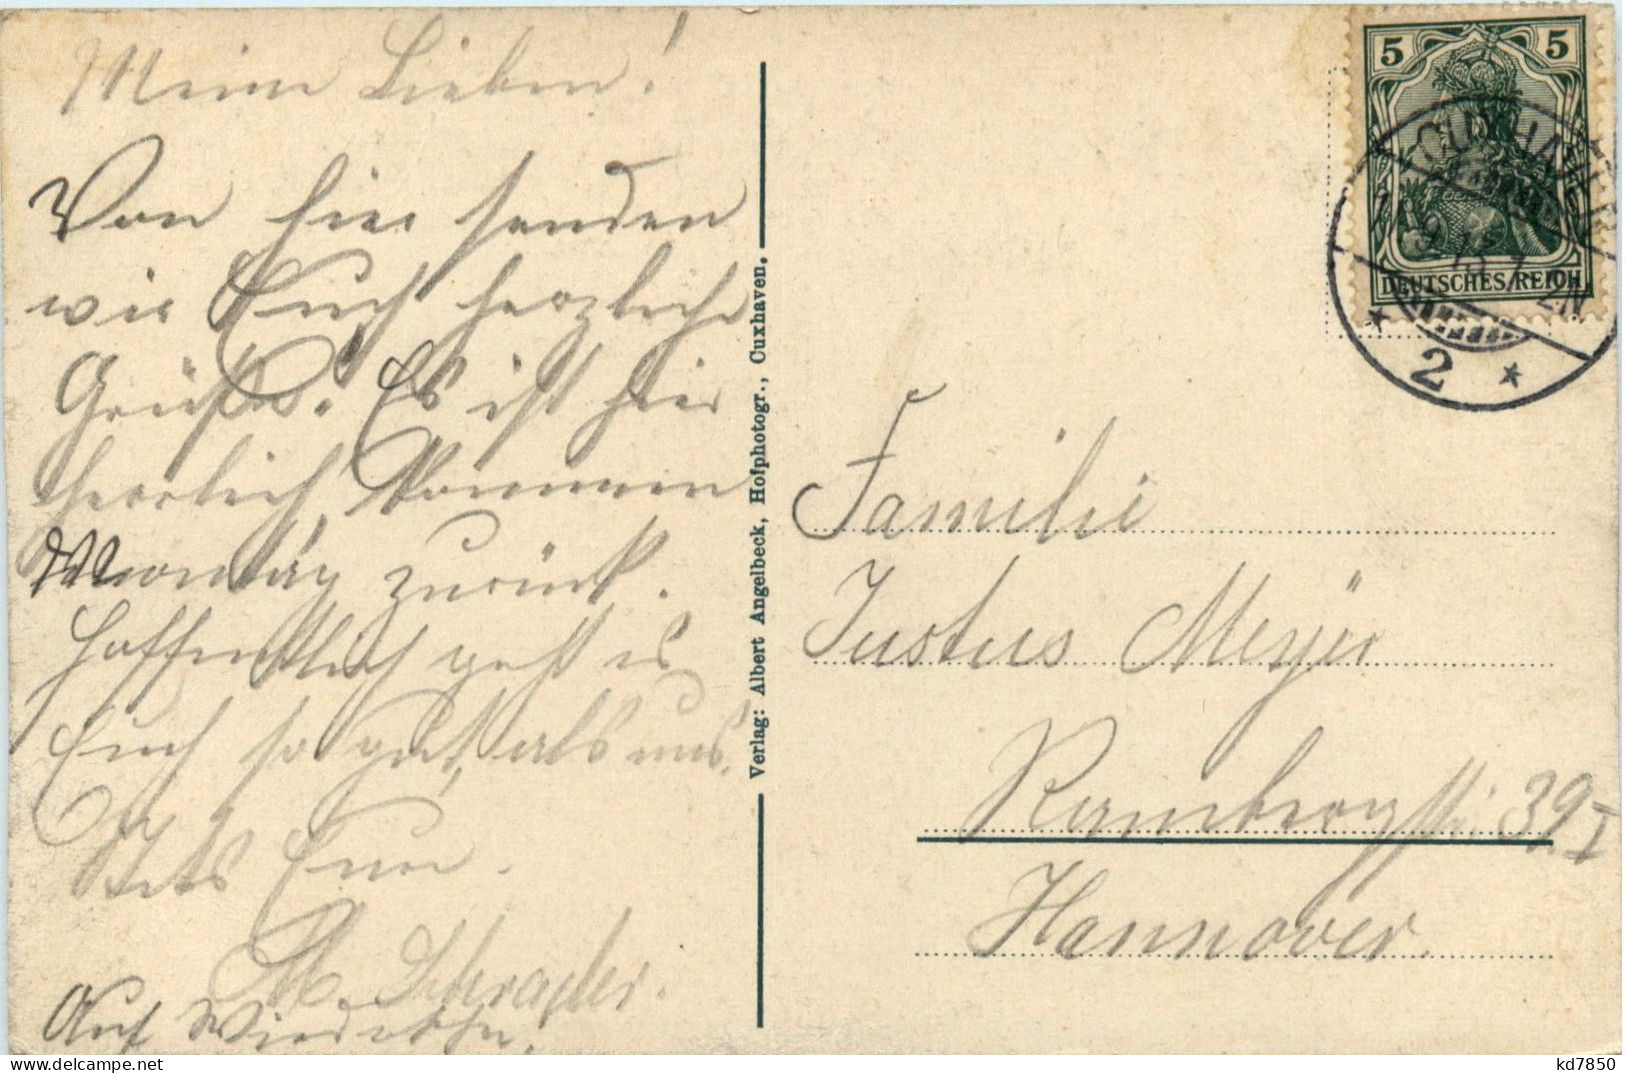 Meine Lieben!
Von hier senden
wir Euch herzliche
Grüße. Es ist hier
herrlich, kommen
Montag zurück.
Hoffentlich geht es
Euch so gut, als uns.
Stets Eure
M. Schrader.
Auf Wiedersehn.
Verlag: Albert Angelbeck, Hofphotogr., Cuxhaven.
5 5
DEUTSCHES REICH
CUXHAVEN
2
Familie
Justus Meyer
39 I
Hannover.
kd7850